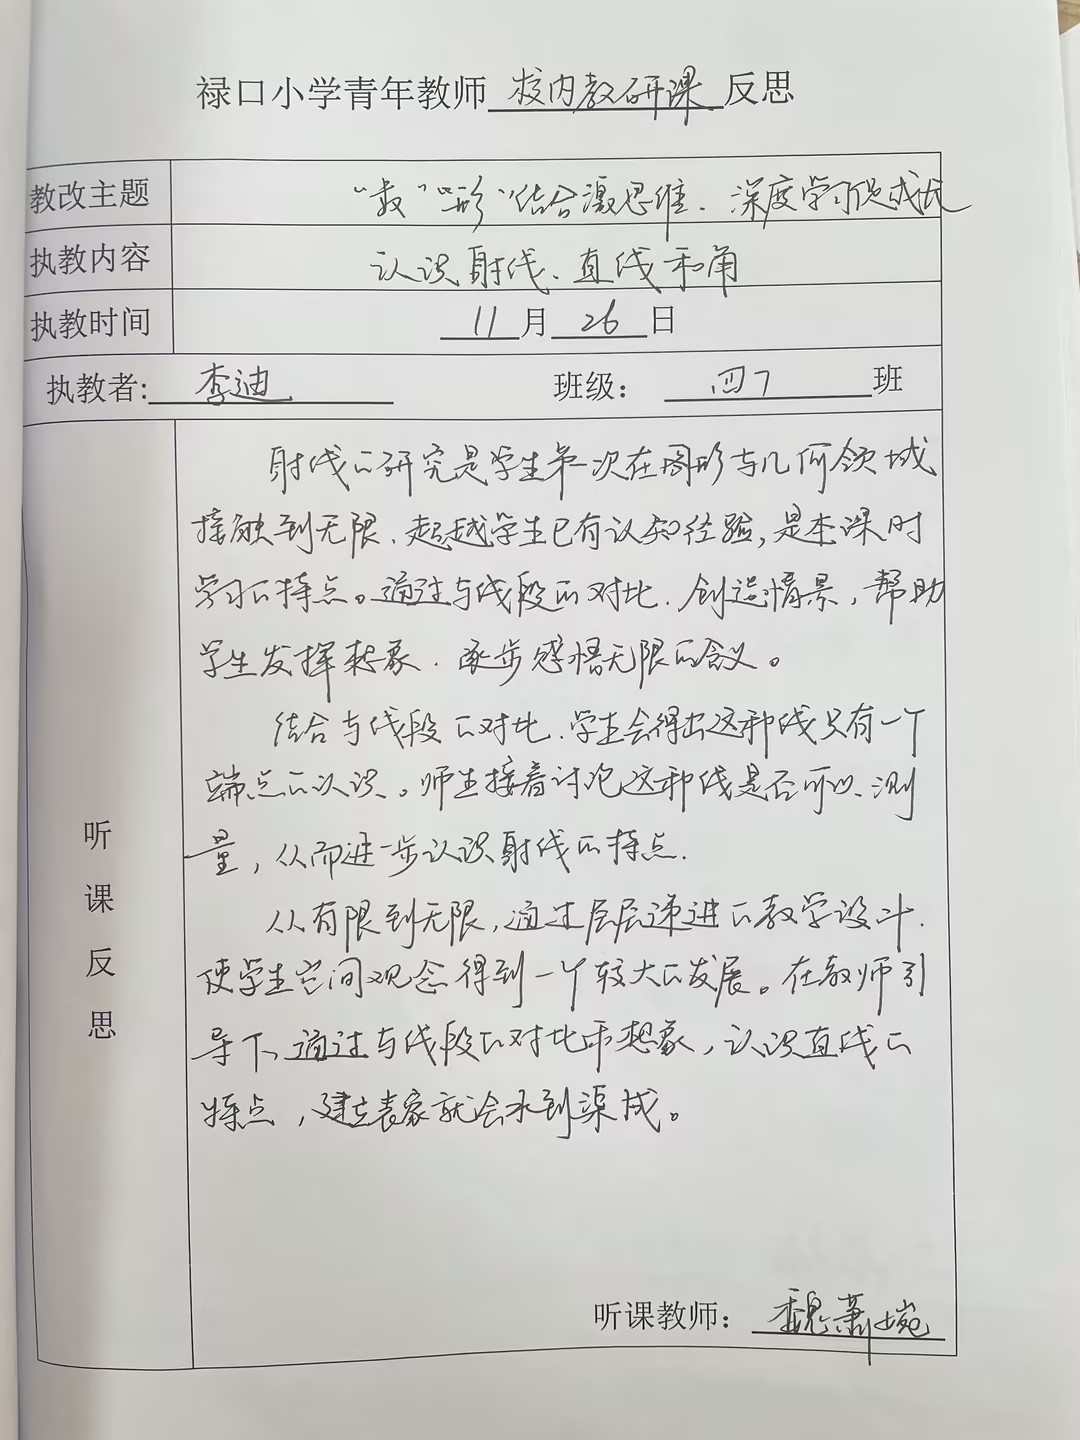 禄口小学青年教师 校内教研课 反思
教改主题 “数”“形”结合激思维、深度学习促成长
执教内容 认识射线、直线和角
执教时间 11月26日
执教者: 李迪 班级： 四7 班
听课反思
射线的研究是学生第一次在图形与几何领域
接触到无限、超越学生已有认知经验，是本课时
学习的特点。通过与线段的对比、创造情景，帮助
学生发挥想象、逐步感悟无限的含义。
结合与线段的对比、学生会得出这种线只有一个
端点的认识。师生接着讨论这种线是否可以测
量，从而进一步认识射线的特点.
从有限到无限，通过层层递进的教学设计、
使学生空间观念得到一个较大的发展。在教师引
导下、通过与线段的对比和想象，认识直线的
特点，建立表象就会水到渠成。
听课教师： 魏萧婉